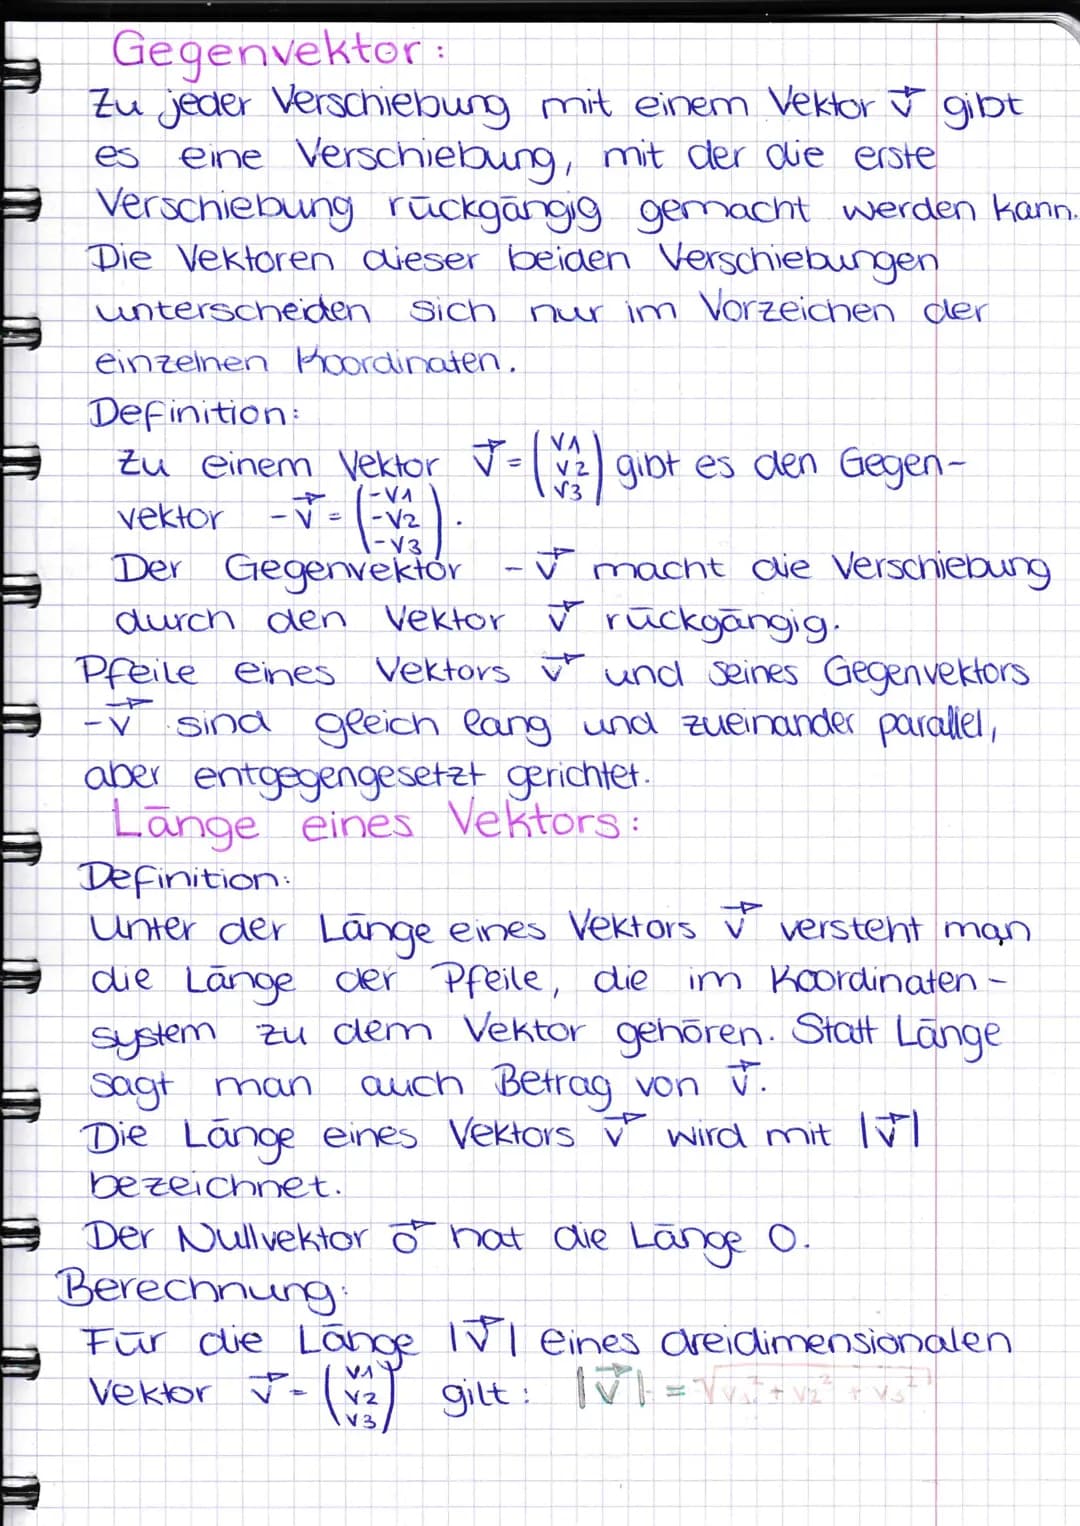 Gegenvektor:
Zu jeder Verschiebung mit einem Vektor v⃗ gibt
es eine Verschiebung, mit der die erste
Verschiebung rückgängig gemacht werden kann.
Die Vektoren dieser beiden Verschiebungen
unterscheiden sich nur im Vorzeichen der
einzelnen Koordinaten.
Definition:
Zu einem Vektor v⃗ = (v1 v2 v3) gibt es den Gegen-
vektor -v⃗ = (-v1 -v2 -v3).
Der Gegenvektor -v⃗ macht die Verschiebung
durch den Vektor v⃗ rückgängig.
Pfeile eines Vektors v⃗ und seines Gegenvektors
-v⃗ sind gleich lang und zueinander parallel,
aber entgegengesetzt gerichtet.
Länge eines Vektors:
Definition:
Unter der Länge eines Vektors v⃗ versteht man
die Länge der Pfeile, die im Koordinaten-
system zu dem Vektor gehören. Statt Länge
sagt man auch Betrag von v⃗.
Die Länge eines Vektors v⃗ wird mit |v⃗|
bezeichnet.
Der Nullvektor o⃗ hat die Länge 0.
Berechnung:
Für die Länge |v⃗| eines dreidimensionalen
Vektor v⃗ = (v1 v2 v3) gilt: |v⃗| = √(v1² + v2² + v3²)